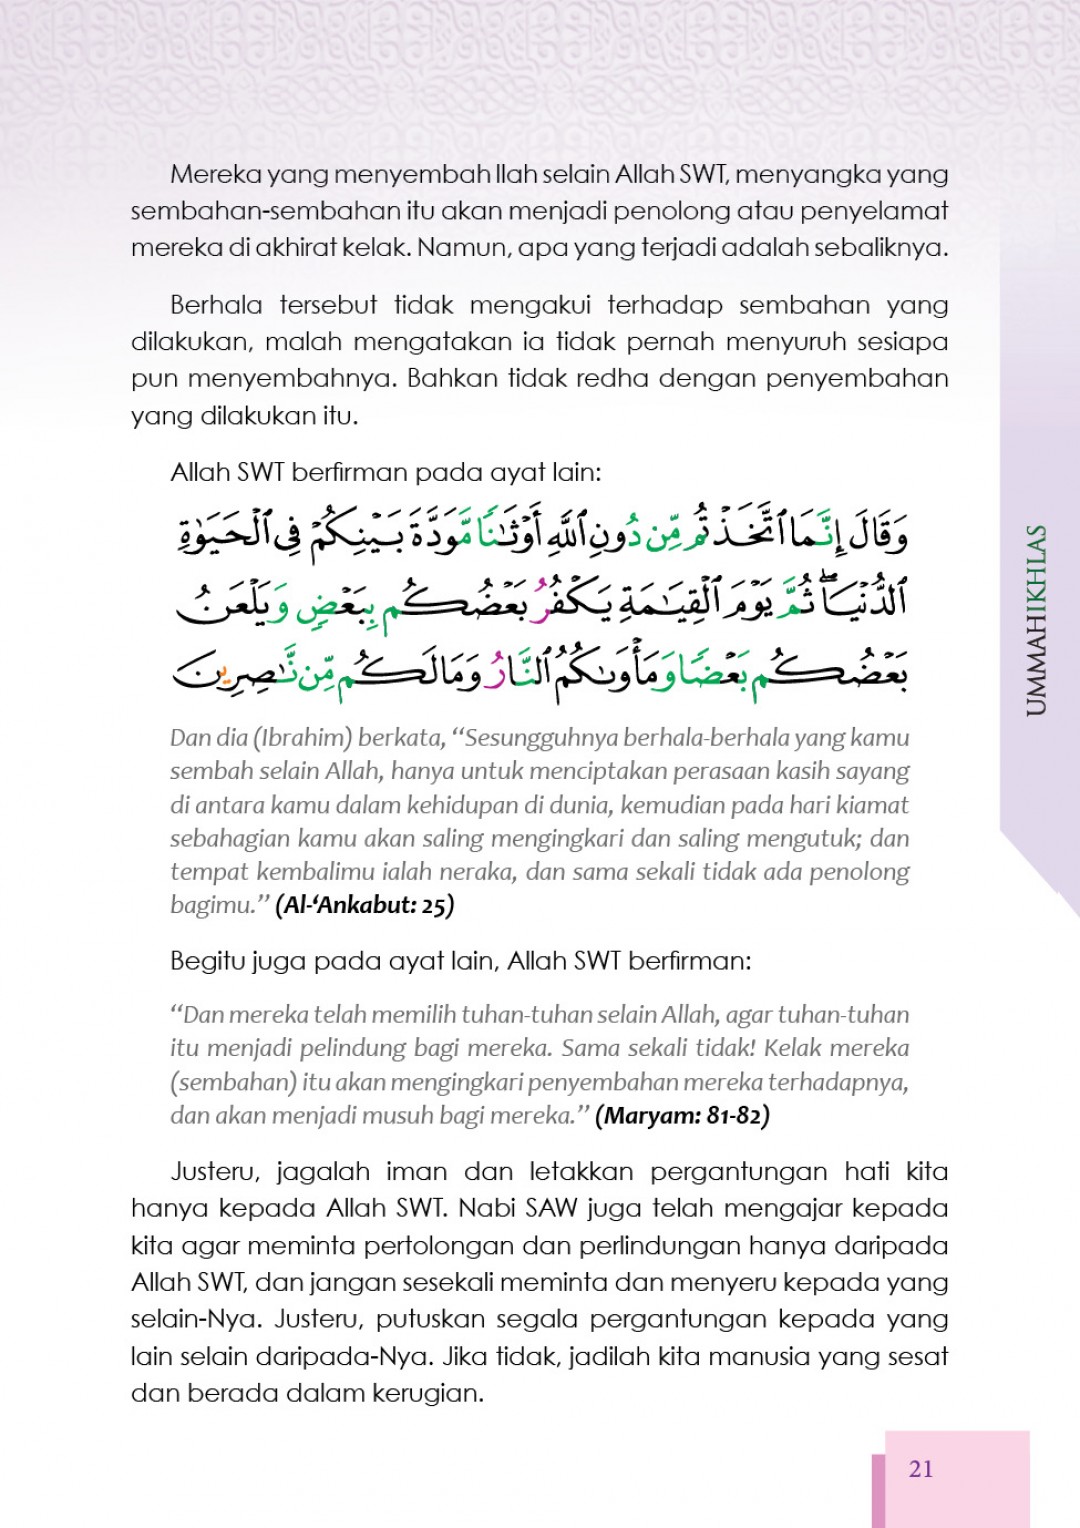 Mereka yang menyembah Ilah selain Allah SWT, menyangka yang
sembahan-sembahan itu akan menjadi penolong atau penyelamat
mereka di akhirat kelak. Namun, apa yang terjadi adalah sebaliknya.
Berhala tersebut tidak mengakui terhadap sembahan yang
dilakukan, malah mengatakan ia tidak pernah menyuruh sesiapa
pun menyembahnya. Bahkan tidak redha dengan penyembahan
yang dilakukan itu.
Allah SWT berfirman pada ayat lain:
وَقَالَ إِنَّمَا ٱتَّخَذْتُم مِّن دُونِ ٱللَّهِ أَوْثَـٰنًا مَّوَدَّةَ بَيْنِكُمْ فِى ٱلْحَيَوٰةِ
ٱلدُّنْيَا ۖ ثُمَّ يَوْمَ ٱلْقِيَـٰمَةِ يَكْفُرُ بَعْضُكُم بِبَعْضٍ وَيَلْعَنُ
بَعْضُكُم بَعْضًا وَمَأْوَىٰكُمُ ٱلنَّارُ وَمَا لَكُم مِّن نَّـٰصِرِينَ
Dan dia (Ibrahim) berkata, “Sesungguhnya berhala-berhala yang kamu
sembah selain Allah, hanya untuk menciptakan perasaan kasih sayang
di antara kamu dalam kehidupan di dunia, kemudian pada hari kiamat
sebahagian kamu akan saling mengingkari dan saling mengutuk; dan
tempat kembalimu ialah neraka, dan sama sekali tidak ada penolong
bagimu.” (Al-‘Ankabut: 25)
Begitu juga pada ayat lain, Allah SWT berfirman:
“Dan mereka telah memilih tuhan-tuhan selain Allah, agar tuhan-tuhan
itu menjadi pelindung bagi mereka. Sama sekali tidak! Kelak mereka
(sembahan) itu akan mengingkari penyembahan mereka terhadapnya,
dan akan menjadi musuh bagi mereka.” (Maryam: 81-82)
Justeru, jagalah iman dan letakkan pergantungan hati kita
hanya kepada Allah SWT. Nabi SAW juga telah mengajar kepada
kita agar meminta pertolongan dan perlindungan hanya daripada
Allah SWT, dan jangan sesekali meminta dan menyeru kepada yang
selain-Nya. Justeru, putuskan segala pergantungan kepada yang
lain selain daripada-Nya. Jika tidak, jadilah kita manusia yang sesat
dan berada dalam kerugian.
UMMAHIKHLAS
21